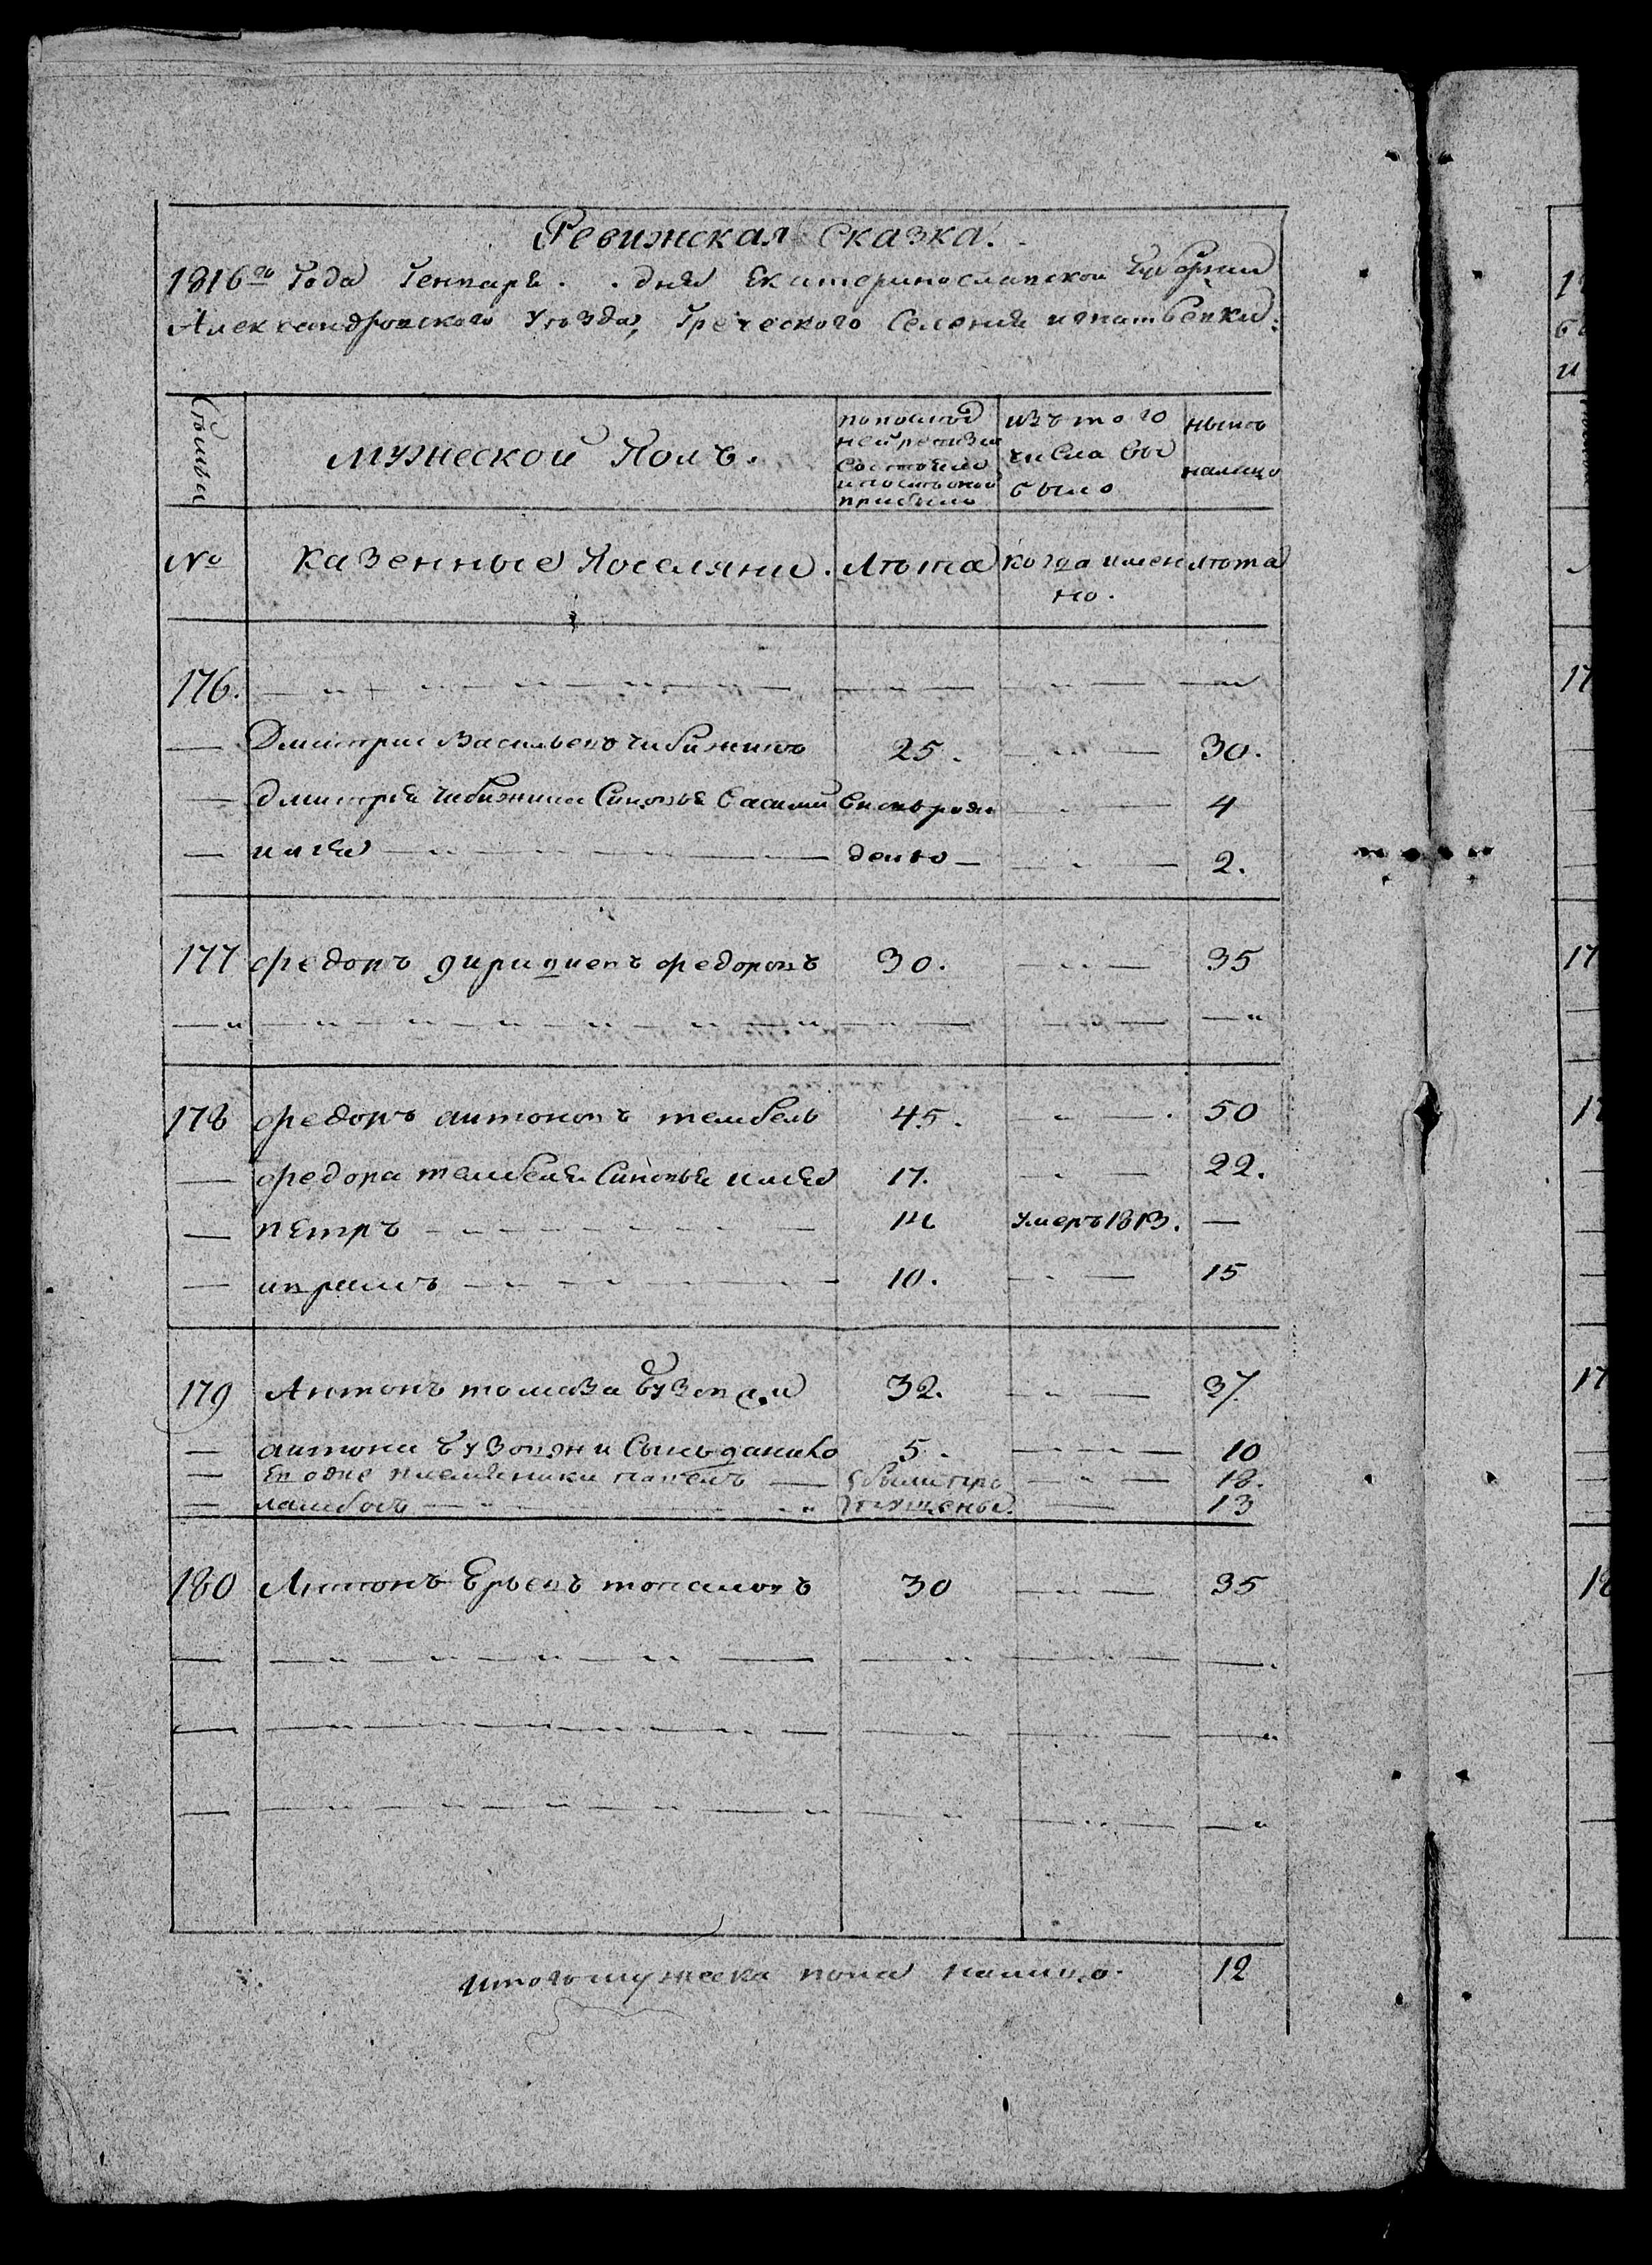 Ревижская Сказка.
1816го Года Генваря . . дня Екатеринославской Губернии
Александровского Уѣзда, Греческого Селения игнатьевки:
Семьи
мужеской Полъ.
по послѣд
ней ревизии
состояло
и послѣ оной
прибыло
изъ того
числа вы
было
нынѣ
налицо
№
казенные Поселяни.
Лѣта
когда имен
но.
лѣта
176.
— Дмитрий Васильевъ чибижинъ 25. — 30.
— Дмитрия чибижина Синовья Василий Вновь рож — 4
— илья — дено — 2.
177 федоръ федоровъ 30. — 35
178 федоръ антоновъ тембель 45. — 50
— федора тембеля Синовья илья 17. — 22.
— петръ — 14 умеръ 1813. —
— авраамъ — 10. — 15
179 Антонъ томаза 32. — 37
— антона Сынъ данило 5. — 10
— Ево же племяники павелъ — были про — 18.
— ламбосъ — пущены. — 13
180 Антонъ Юрьевъ топаловъ 30 — 35
итого мужеска пола налицо. 12
1
17
17
17
17
18